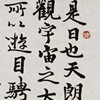 是日也天朗
觀宇宙之大
所以遊目騁